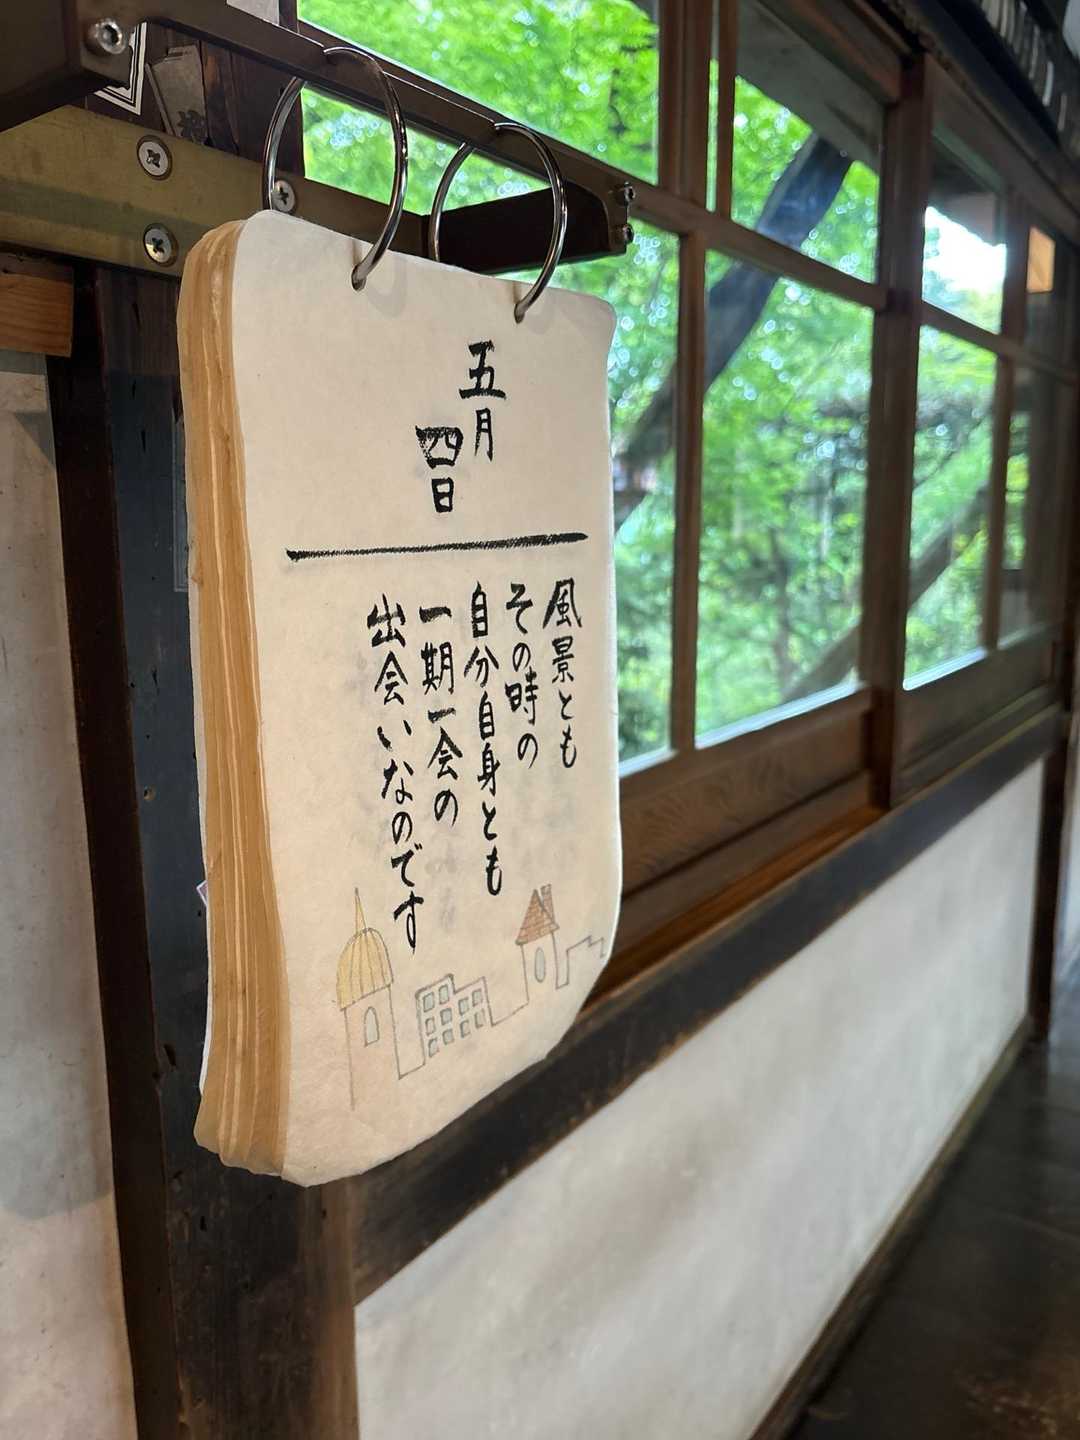 五月
四日
風景とも
その時の
自分自身とも
一期一会の
出会いなのです